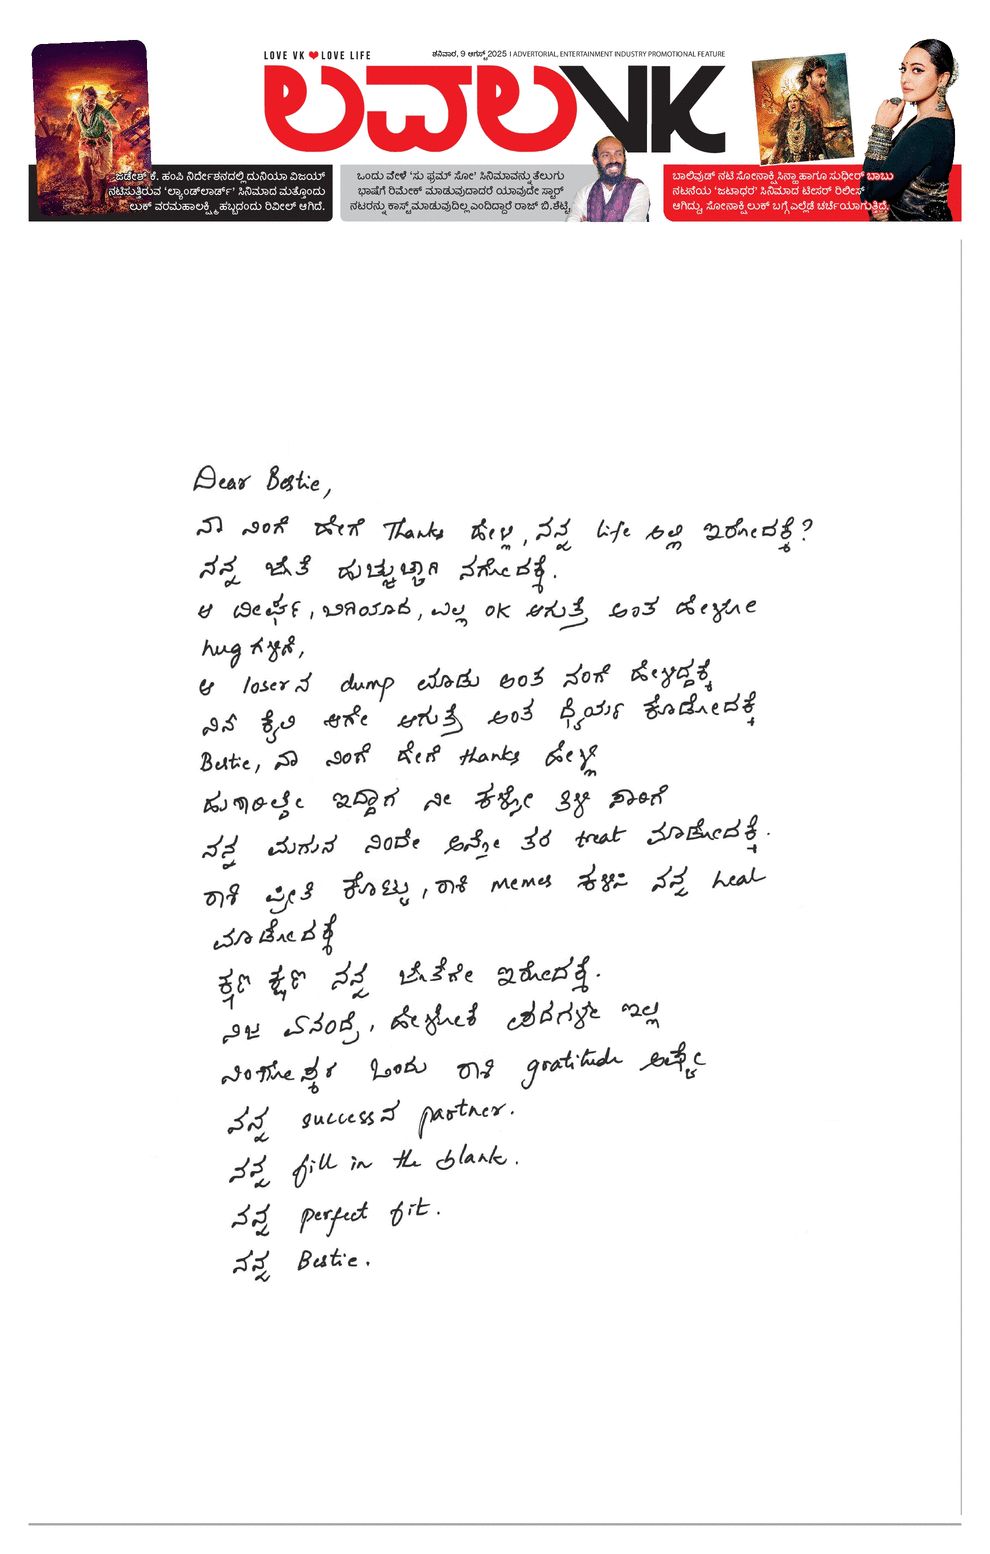 LOVE VK ❤ LOVE LIFE
ಶನಿವಾರ, 9 ಆಗಸ್ಟ್ 2025 | ADVERTORIAL, ENTERTAINMENT INDUSTRY PROMOTIONAL FEATURE
ಲವಲVK
ಜಡೇಶ್ ಕೆ. ಹಂಪಿ ನಿರ್ದೇಶನದಲ್ಲಿ ದುನಿಯಾ ವಿಜಯ್
ನಟಿಸುತ್ತಿರುವ ‘ಲ್ಯಾಂಡ್‌ಲಾರ್ಡ್’ ಸಿನಿಮಾದ ಮತ್ತೊಂದು
ಲುಕ್ ವರಮಹಾಲಕ್ಷ್ಮಿ ಹಬ್ಬದಂದು ರಿವೀಲ್ ಆಗಿದೆ.
ಒಂದು ವೇಳೆ ‘ಸು ಫ್ರಮ್ ಸೋ’ ಸಿನಿಮಾವನ್ನು ತೆಲುಗು
ಭಾಷೆಗೆ ರಿಮೇಕ್ ಮಾಡುವುದಾದರೆ ಯಾವುದೇ ಸ್ಟಾರ್
ನಟರನ್ನು ಕಾಸ್ಟ್ ಮಾಡುವುದಿಲ್ಲ ಎಂದಿದ್ದಾರೆ ರಾಜ್ ಬಿ.ಶೆಟ್ಟಿ.
ಬಾಲಿವುಡ್ ನಟಿ ಸೋನಾಕ್ಷಿ ಸಿನ್ಹಾ ಹಾಗೂ ಸುಧೀರ್ ಬಾಬು
ನಟನೆಯ ‘ಜಟಾಧರ’ ಸಿನಿಮಾದ ಟೀಸರ್ ರಿಲೀಸ್
ಆಗಿದ್ದು, ಸೋನಾಕ್ಷಿ ಲುಕ್ ಬಗ್ಗೆ ಎಲ್ಲೆಡೆ ಚರ್ಚೆಯಾಗುತ್ತಿದೆ.
Dear Bestie,
ನಾ ನಿಂಗೆ ಹೇಗೆ Thanks ಹೇಳ್ಲಿ, ನನ್ನ life ಅಲ್ಲಿ ಇರೋದಕ್ಕೆ?
ನನ್ನ ಜೊತೆ ಹುಚ್ಚುಚ್ಚಾಗಿ ನಗೋದಕ್ಕೆ.
ಆ ದೀರ್ಘ, ಬಿಗಿಯಾದ, ಎಲ್ಲ OK ಆಗುತ್ತೆ ಅಂತ ಹೇಳೋ
hug ಗಳಿಗೆ,
ಆ loserನ dump ಮಾಡು ಅಂತ ನಂಗೆ ಹೇಳಿದ್ದಕ್ಕೆ
ನಿನ್ ಕೈಲಿ ಆಗೇ ಆಗುತ್ತೆ ಅಂತ ಧೈರ್ಯ ಕೊಡೋದಕ್ಕೆ
Bestie, ನಾ ನಿಂಗೆ ಹೇಗೆ thanks ಹೇಳ್ಲಿ
ಹುಷಾರಿಲ್ದೇ ಇದ್ದಾಗ ನೀ ಕಳ್ಸೋ ತಿಳಿ ಸಾರಿಗೆ
ನನ್ನ ಮಗುನ ನಿಂದೇ ಅನ್ನೋ ತರ treat ಮಾಡೋದಕ್ಕೆ.
ರಾಶಿ ಪ್ರೀತಿ ಕೊಟ್ಟು, ರಾಶಿ memes ಕಳಿಸಿ ನನ್ನ heal
ಮಾಡೋದಕ್ಕೆ
ಕ್ಷಣ ಕ್ಷಣ ನನ್ನ ಜೊತೆಗೇ ಇರೋದಕ್ಕೆ.
ನಿಜ ಏನಂದ್ರೆ, ಹೇಳೋಕೆ ಪದಗಳೇ ಇಲ್ಲ
ನಿಂಗೋಸ್ಕರ ಒಂದು ರಾಶಿ gratitude ಅಷ್ಟೇ
ನನ್ನ successನ partner.
ನನ್ನ fill in the blank.
ನನ್ನ perfect fit.
ನನ್ನ Bestie.